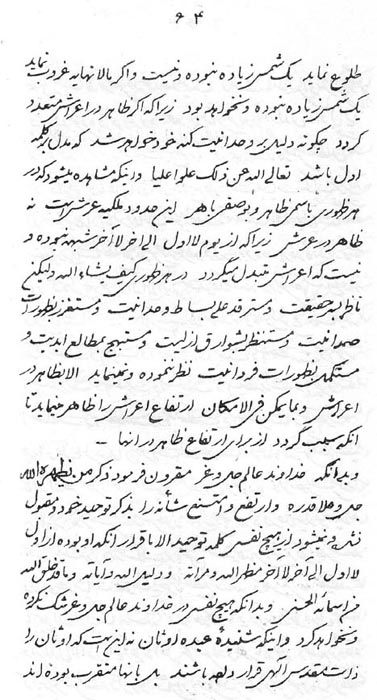 ۶۴
طلوع نماید یک شمس زیاده نبوده و نیست و اگر بالا نهایه غروب نماید
یک شمس زیاده نبوده و نخواهد بود زیرا که اگر ظاهر در اعراش متعدد
گردد چگونه دلیل بر وحدانیت کنه خود خواهد شد که مدل بر کلمه
اول باشد تعالی الله عن ذلک علوا علیا و اینکه مشاهده میشود که در
هر ظهوری باسمی ظاهر و بوصفی باهر این حدود ملکیه عرش است نه
ظاهر در عرش زیرا که از یوم لا اول الی آخر لا آخر شبهه نبوده و
نیست که اعراش تبدل میگردد در هر ظهور کیف یشاء الله ولیکن
ناظر بسر حقیقت و مسترفد علی بساط وحدانیت و مستفرز بطورات
صمدانیت و مستنظر بشوارق ازلیت و مستبهج بمطالع ابدیت و
مستکمن بظهورات فردانیت نظر ننموده و نمینماید الا بظاهر در
اعراش و بما یمکن فی الامکان ارتفاع اعراش را ظاهر مینماید تا
آنکه سبب گردد از برای ارتفاع ظاهر در آنها
و بدانکه خداوند عالم جل و عز مقرون فرموده ذکر من یظهره الله
جل و علا قدره و ارتفع و امتنع شأنه را بذکر توحید خود و مقبول
نشده و نمیشود از هیچ نفسی کلمه توحید الا باقرار آنکه او بوده از اول
لا اول الی آخر لا آخر منظر الله و مرآته و دلیل الله و آیاته و ما قد خلق الله
فی اسمائه الحسنی و بدانکه هیچ نفسی در خداوند عالم جل و عز شک نکرده
و نخواهد کرد و اینکه شنیده عبده اوثان نه این است که اوثان را
ذات مقدس الهی قرار داده باشند بل بانها متقرب بوده اند